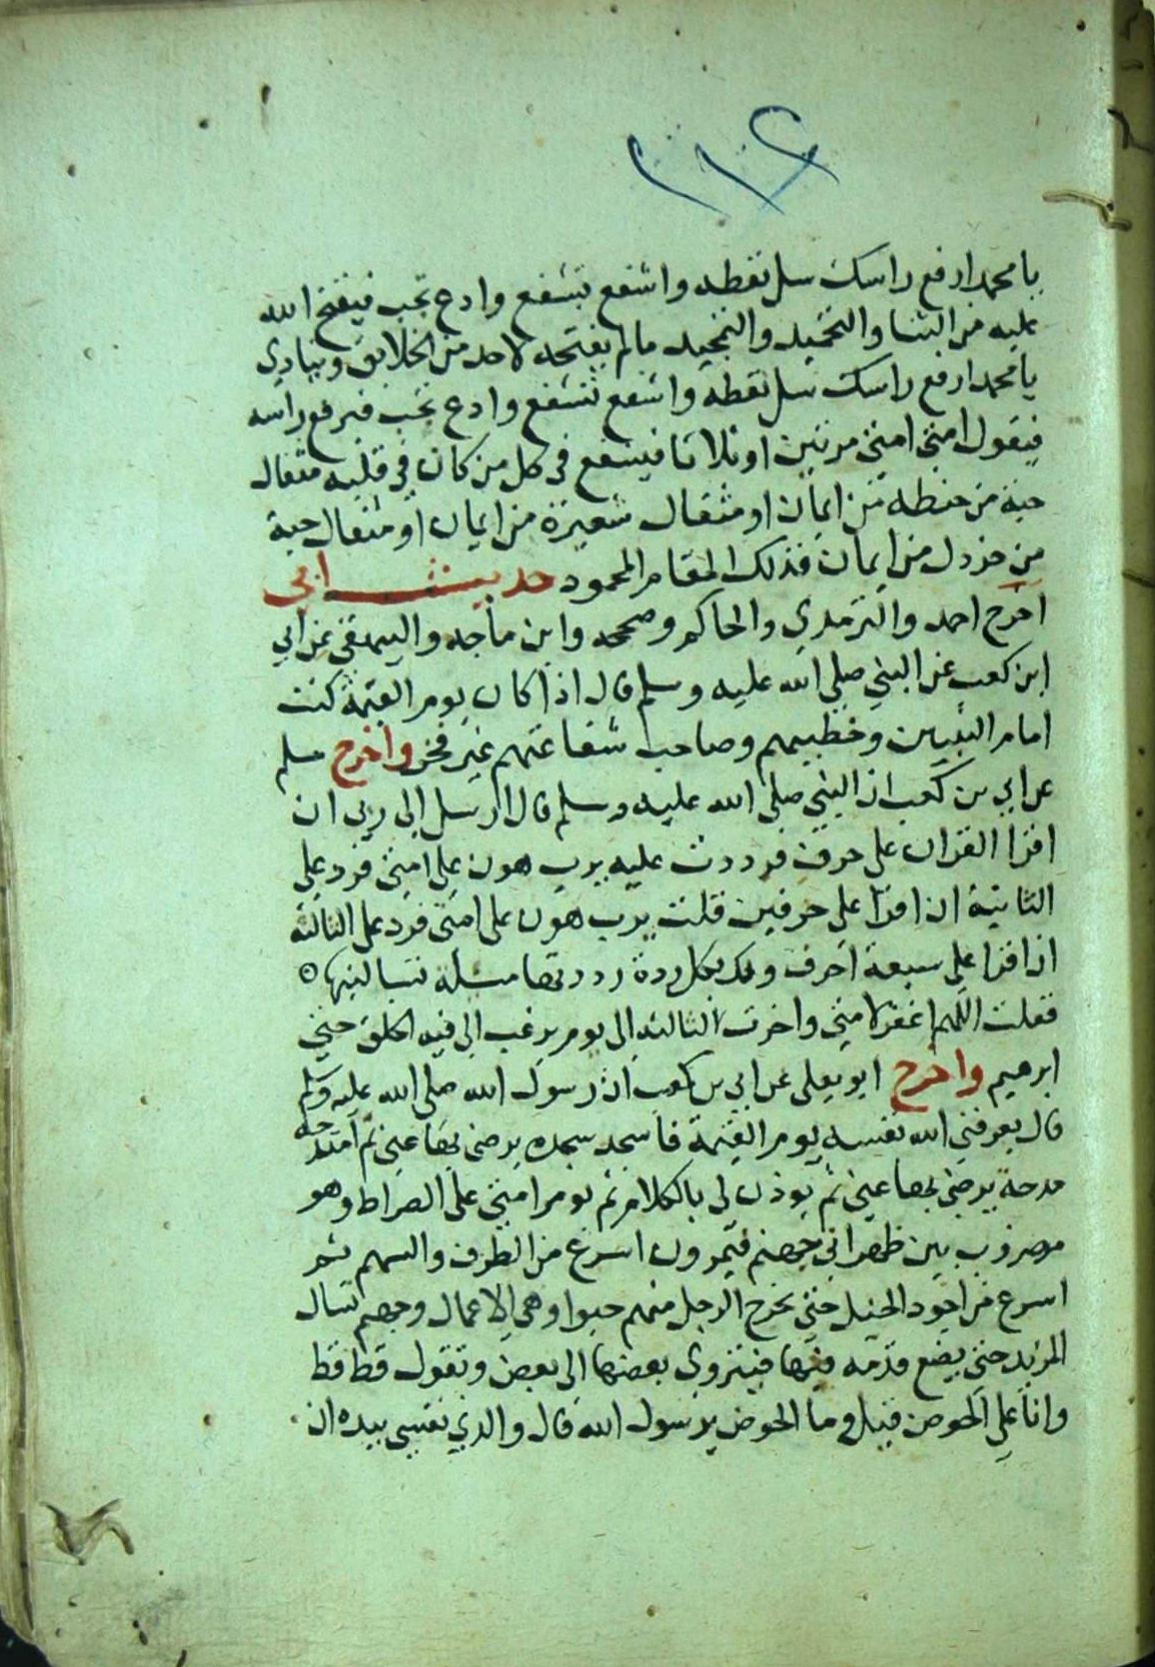 ٢١٢
يا محمد ارفع راسك سل تعطه واشفع تشفع وادع تجب فيفتح الله
عليه من الثنا والتحميد والتمجيد ما لم يفتحه لاحد من الخلايق وينادي
يا محمد ارفع راسك سل تعطه واشفع تشفع وادع تجب فيرفع راسه
فيقول امتي امتي مرتين او ثلاثا فيشفع في كل من كان في قلبه مثقال
حبة من حنطه من ايمان او مثقال شعيرة من ايمان او مثقال حبة
من خردل من ايمان فذلك المقام المحمود حديث ابي
اخرج احمد والترمدي والحاكم وصححه وابن ماجه والبيهقي عن ابي
ابن كعب عن النبي صلي الله عليه وسلم قال اذا كان يوم القيمة كنت
امام النبيين وخطيبهم وصاحب شفاعتهم غير فخر واخرج مسلم
عن ابي بن كعب ان النبي صلي الله عليه وسلم قال ارسل الي ربي ان
اقرا القران علي حرف فرددت عليه يرب هون علي امتي فرد علي
الثانية ان اقرا علي حرفين قلت يرب هون علي امتي فرد علي الثالثة
ان اقرا علي سبعة احرف ولك بكل ردة رددتها مسلة تسالنيها ٥
فقلت اللهم اغفر لامتي واخرت الثالثه الي يوم يرغب الي فيه الخلق حتي
ابرهيم واخرج ابو يعلي عن ابي بن كعب ان رسول الله صلي الله عليه وسلم
قال يعرفني الله نفسه يوم القيمة فاسجد سجده يرضي بها عني ثم امتدحه
مدحة يرضي بها عني ثم يوذن لي بالكلام ثم يومر امتي علي الصراط وهو
مضروب بين ظهراني جهنم فيمرون اسرع من الطرف والسهم ثم
اسرع من اجود الخيل حتي يخرج الرجل منهم حبوا وهي الاعمال وجهنم تسال
المزيد حتي يضع قدمه فيها فينزوي بعضها الي بعض وتقول قط قط
وانا علي الحوض قيل وما الحوض يرسول الله قال والذي نفسي بيده ان